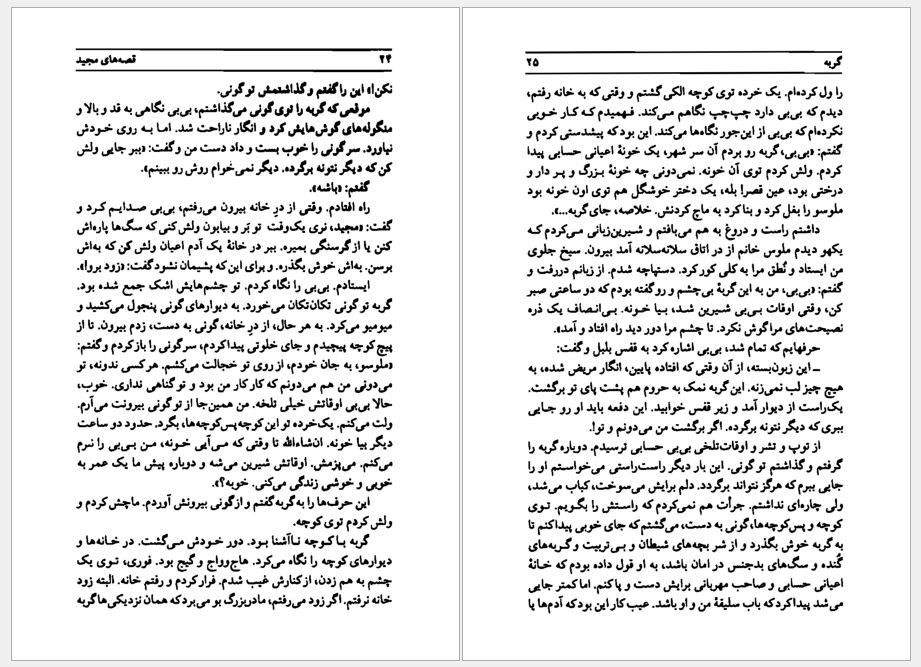 ۲۴ قصه‌های مجید
نکن!» این را گفتم و گذاشتمش تو گونی.
موقعی که گربه را توی گونی می‌گذاشتم، بی‌بی نگاهی به قد و بالا و
منگوله‌های گوش‌هایش کرد و انگار ناراحت شد. اما به روی خودش
نیاورد. سر گونی را خوب بست و داد دست من و گفت: «ببر جایی ولش
کن که دیگر نتونه برگرده. دیگر نمی‌خوام روش رو ببینم».
گفتم: «باشه».
راه افتادم. وقتی از درِ خانه بیرون می‌رفتم، بی‌بی صدایم کرد و
گفت: «مجید، نری یک‌وقت تو بَر و بیابون ولش کنی که سگ‌ها پاره‌اش
کنن یا از گرسنگی بمیره. ببر در خانهٔ یک آدم اعیان ولش کن که به‌اش
برسن. به‌اش خوش بگذره. و برای این که پشیمان نشود گفت: «زود برو!».
ایستادم. بی‌بی را نگاه کردم. تو چشم‌هایش اشک جمع شده بود.
گربه تو گونی تکان‌تکان می‌خورد. به دیوارهای گونی پنجول می‌کشید و
میومیو می‌کرد. به هر حال، از درِ خانه، گونی به دست، زدم بیرون. تا از
پیچ کوچه پیچیدم و جای خلوتی پیدا کردم، سر گونی را باز کردم و گفتم:
«ملوسو، به جان خودم، از روی تو خجالت می‌کشم. هر کسی ندونه، تو
می‌دونی من هم می‌دونم که کار کار من بود و تو گناهی نداری. خوب،
حالا بی‌بی اوقاتش خیلی تلخه. من همین‌جا از تو گونی بیرونت می‌آرم.
ولت می‌کنم. یک‌خرده تو این کوچه پس‌کوچه‌ها، بگرد. حدود دو ساعت
دیگر بیا خونه. ان‌شاءالله تا وقتی که می‌آیی خونه، من بی‌بی را نرم
می‌کنم. می‌پزمش. اوقاتش شیرین می‌شه و دوباره پیش ما یک عمر به
خوبی و خوشی زندگی می‌کنی. خوبه؟».
این حرف‌ها را به گربه گفتم و از گونی بیرونش آوردم. ماچش کردم و
ولش کردم توی کوچه.
گربه با کوچه ناآشنا بود. دور خودش می‌گشت. در خانه‌ها و
دیوارهای کوچه را نگاه می‌کرد. هاج‌وواج و گیج بود. فوری، توی یک
چشم به هم زدن، از کنارش غیب شدم. فرار کردم و رفتم خانه. البته زود
خانه نرفتم. اگر زود می‌رفتم، مادربزرگ بو می‌برد که همان نزدیکی‌ها گربه
گربه ۲۵
را ول کرده‌ام. یک خرده توی کوچه الکی گشتم و وقتی که به خانه رفتم،
دیدم که بی‌بی دارد چپ‌چپ نگاهم می‌کند. فهمیدم که کار خوبی
نکرده‌ام که بی‌بی از این‌جور نگاه‌ها می‌کند. این بود که پیشدستی کردم و
گفتم: «بی‌بی، گربه رو بردم آن سر شهر، یک خونهٔ اعیانی حسابی پیدا
کردم. ولش کردم توی آن خونه. نمی‌دونی چه خونهٔ بزرگ و پر دار و
درختی بود، عین قصر! بله، یک دختر خوشگل هم توی اون خونه بود
ملوسو را بغل کرد و بنا کرد به ماچ کردنش. خلاصه، جای گربه...».
داشتم راست و دروغ به هم می‌بافتم و شیرین‌زبانی می‌کردم که
یکهو دیدم ملوس خانم از در اتاق سلانه‌سلانه آمد بیرون. سیخ جلوی
من ایستاد و نُطق مرا به کلی کور کرد. دستپاچه شدم. از زبانم دررفت و
گفتم: «بی‌بی، من به این گربهٔ بی‌چشم و رو گفته بودم که دو ساعتی صبر
کن، وقتی اوقات بی‌بی شیرین شد، بیا خونه. بی‌انصاف یک ذره
نصیحت‌های مرا گوش نکرد. تا چشم مرا دور دید راه افتاد و آمد».
حرفهایم که تمام شد، بی‌بی اشاره کرد به قفس بلبل و گفت:
ــ این زبون‌بسته، از آن وقتی که افتاده پایین، انگار مریض شده، به
هیچ چیز لب نمی‌زنه. این گربه نمک به حروم هم پشت پای تو برگشت.
یک‌راست از دیوار آمد و زیر قفس خوابید. این دفعه باید او رو جایی
ببری که دیگر نتونه برگرده. اگر برگشت من می‌دونم و تو!.
از توپ و تشر و اوقات‌تلخی بی‌بی حسابی ترسیدم. دوباره گربه را
گرفتم و گذاشتم تو گونی. این بار دیگر راست‌راستی می‌خواستم او را
جایی ببرم که هرگز نتواند برگردد. دلم برایش می‌سوخت، کباب می‌شد،
ولی چاره‌ای نداشتم. جرأت هم نمی‌کردم که راستش را بگویم. توی
کوچه و پس‌کوچه‌ها، گونی به دست، می‌گشتم که جای خوبی پیدا کنم تا
به گربه خوش بگذرد و از شر بچه‌های شیطان و بی‌تربیت و گربه‌های
گُنده و سگ‌های بدجنس در امان باشد، به او قول داده بودم که خانهٔ
اعیانی حسابی و صاحب مهربانی برایش دست و پا کنم. اما کمتر جایی
می‌شد پیدا کرد که باب سلیقهٔ من و او باشد. عیب کار این بود که آدم‌ها یا